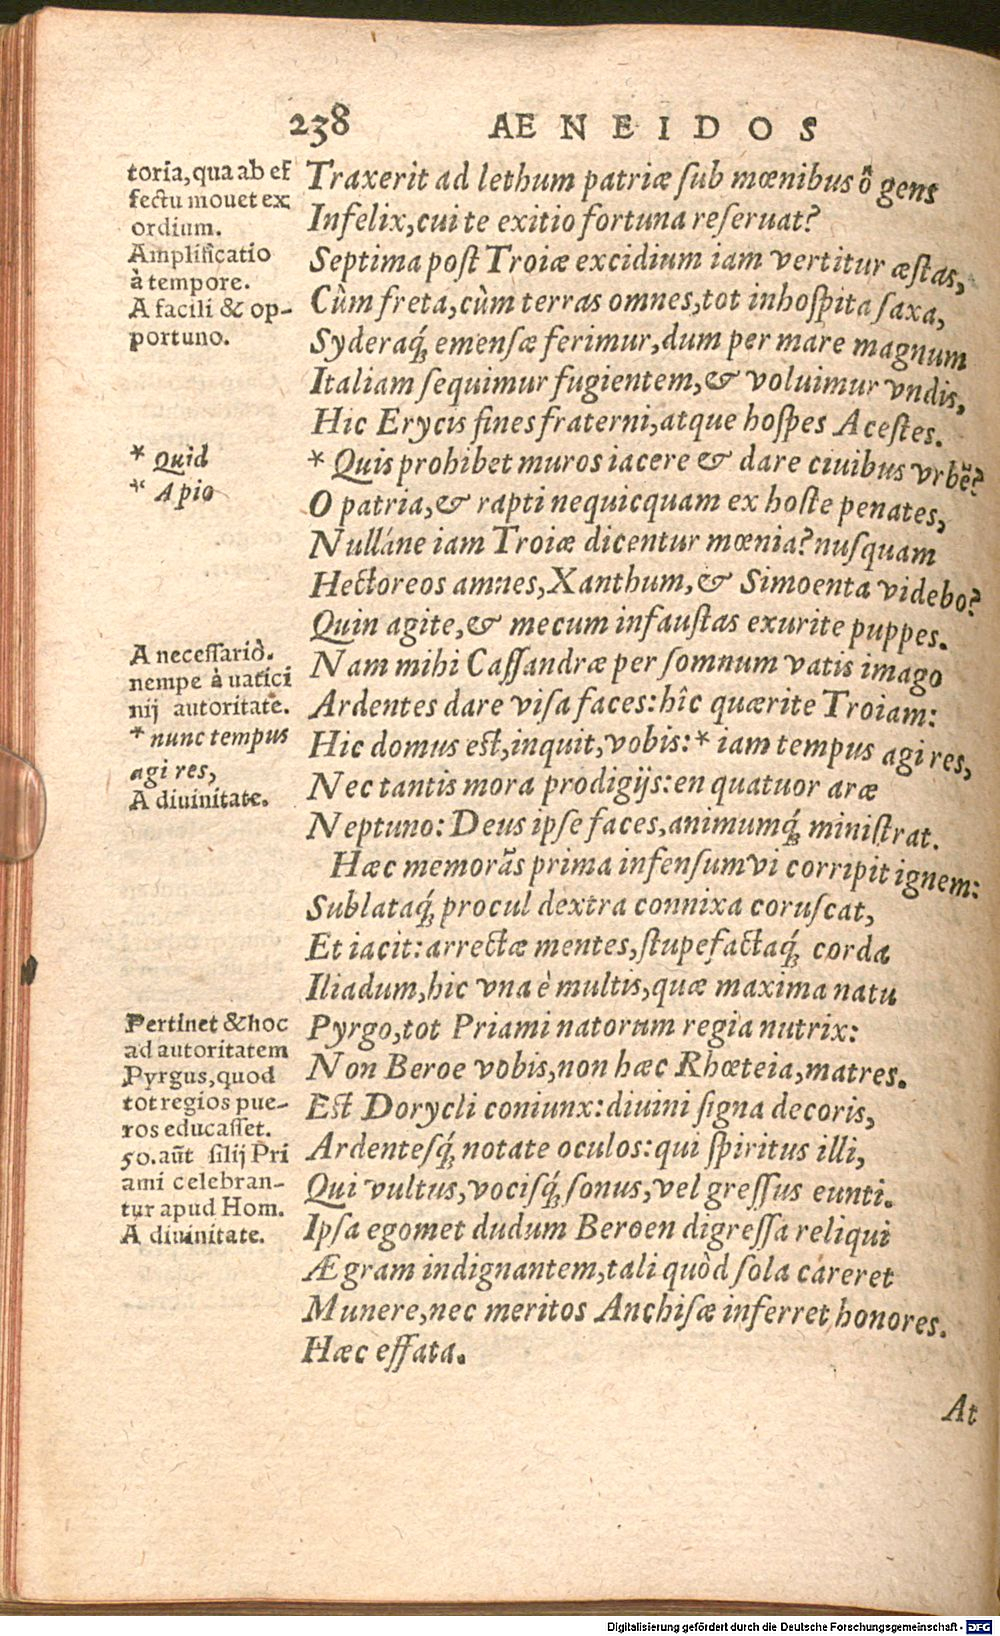 238 AENEIDOS
toria, qua ab ef
fectu mouet ex
ordium.
Amplificatio
à tempore.
A facili & op-
portuno.
* Quid
* Apio
A necessariò.
nempe à uatici
nij autoritate.
* nunc tempus
agi res,
A diuinitate.
Pertinet & hoc
ad autoritatem
Pyrgus, quod
tot regios pue-
ros educasset.
50. aūt filij Pri
ami celebran-
tur apud Hom.
A diuinitate.
Traxerit ad lethum patriæ sub mœnibus ô gens
Infelix, cui te exitio fortuna reseruat?
Septima post Troiæ excidium iam vertitur æstas,
Cùm freta, cùm terras omnes, tot inhospita saxa,
Syderaq́; emensæ ferimur, dum per mare magnum
Italiam sequimur fugientem, & voluimur vndis,
Hic Erycis fines fraterni, atque hospes Acestes.
* Quis prohibet muros iacere & dare ciuibus vrbē?
O patria, & rapti nequicquam ex hoste penates,
Nulláne iam Troiæ dicentur mœnia? nusquam
Hectoreos amnes, Xanthum, & Simoenta videbo?
Quin agite, & mecum infaustas exurite puppes.
Nam mihi Cassandræ per somnum vatis imago
Ardentes dare visa faces: hîc quærite Troiam:
Hic domus est, inquit, vobis: * iam tempus agi res,
Nec tantis mora prodigijs: en quatuor aræ
Neptuno: Deus ipse faces, animumq́; ministrat.
Hæc memorās prima infensum vi corripit ignem:
Sublataq́; procul dextra connixa coruscat,
Et iacit: arrectæ mentes, stupefactaq́; corda
Iliadum, hic vna è multis, quæ maxima natu
Pyrgo, tot Priami natorum regia nutrix:
Non Beroe vobis, non hæc Rhœteia, matres.
Est Dorycli coniunx: diuini signa decoris,
Ardentesq́; notate oculos: qui spiritus illi,
Qui vultus, vocisq́; sonus, vel gressus eunti.
Ipsa egomet dudum Beroen digressa reliqui
Ægram indignantem, tali quòd sola careret
Munere, nec meritos Anchisæ inferret honores.
Hæc effata.
At
Digitalisierung gefördert durch die Deutsche Forschungsgemeinschaft - DFG